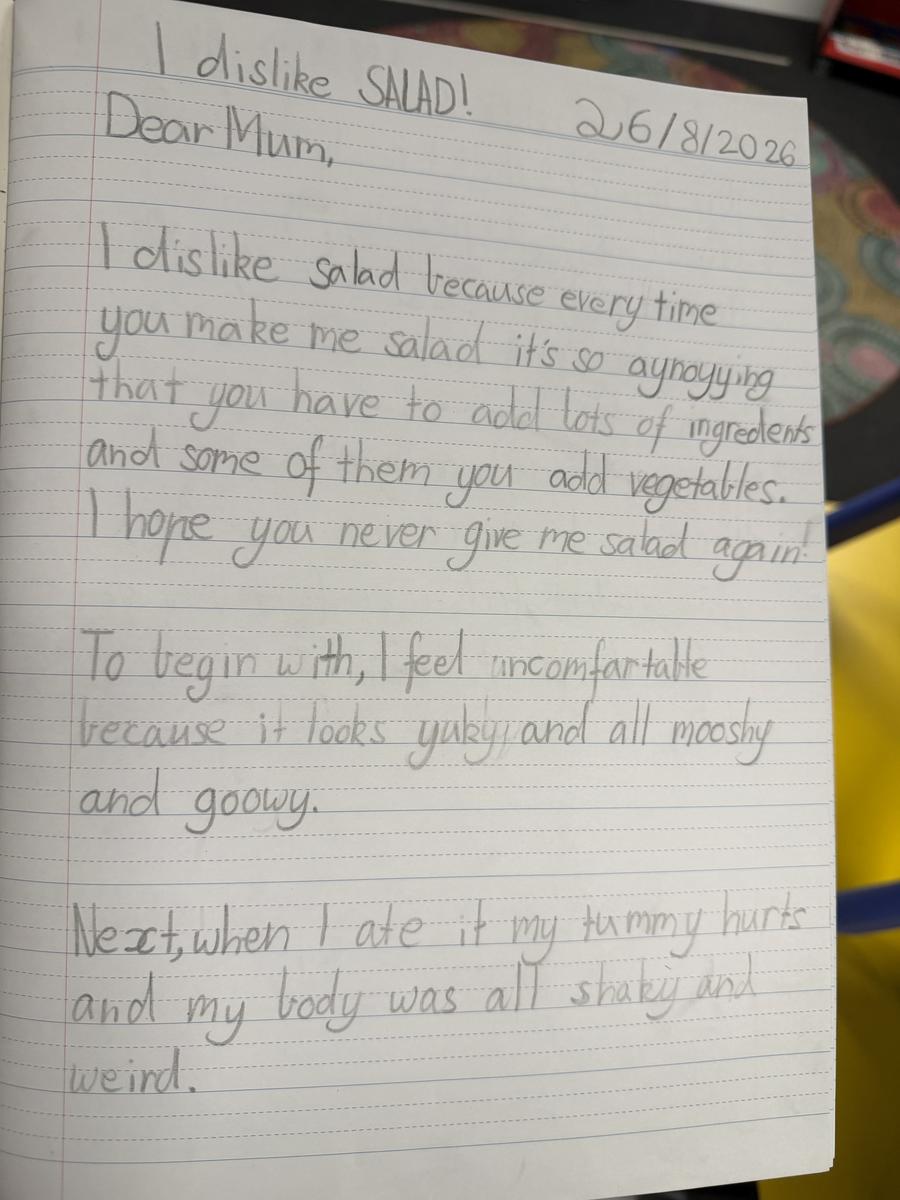 I dislike SALAD!
26/8/2026
Dear Mum,
I dislike salad because every time
you make me salad it's so aynoyying
that you have to add lots of ingredents
and some of them you add vegetables.
I hope you never give me salad again!
To begin with, I feel uncomfartable
because it looks yuky, and all mooshy
and goowy.
Next, when I ate it my tummy hurts
and my body was all shaky and
weird.